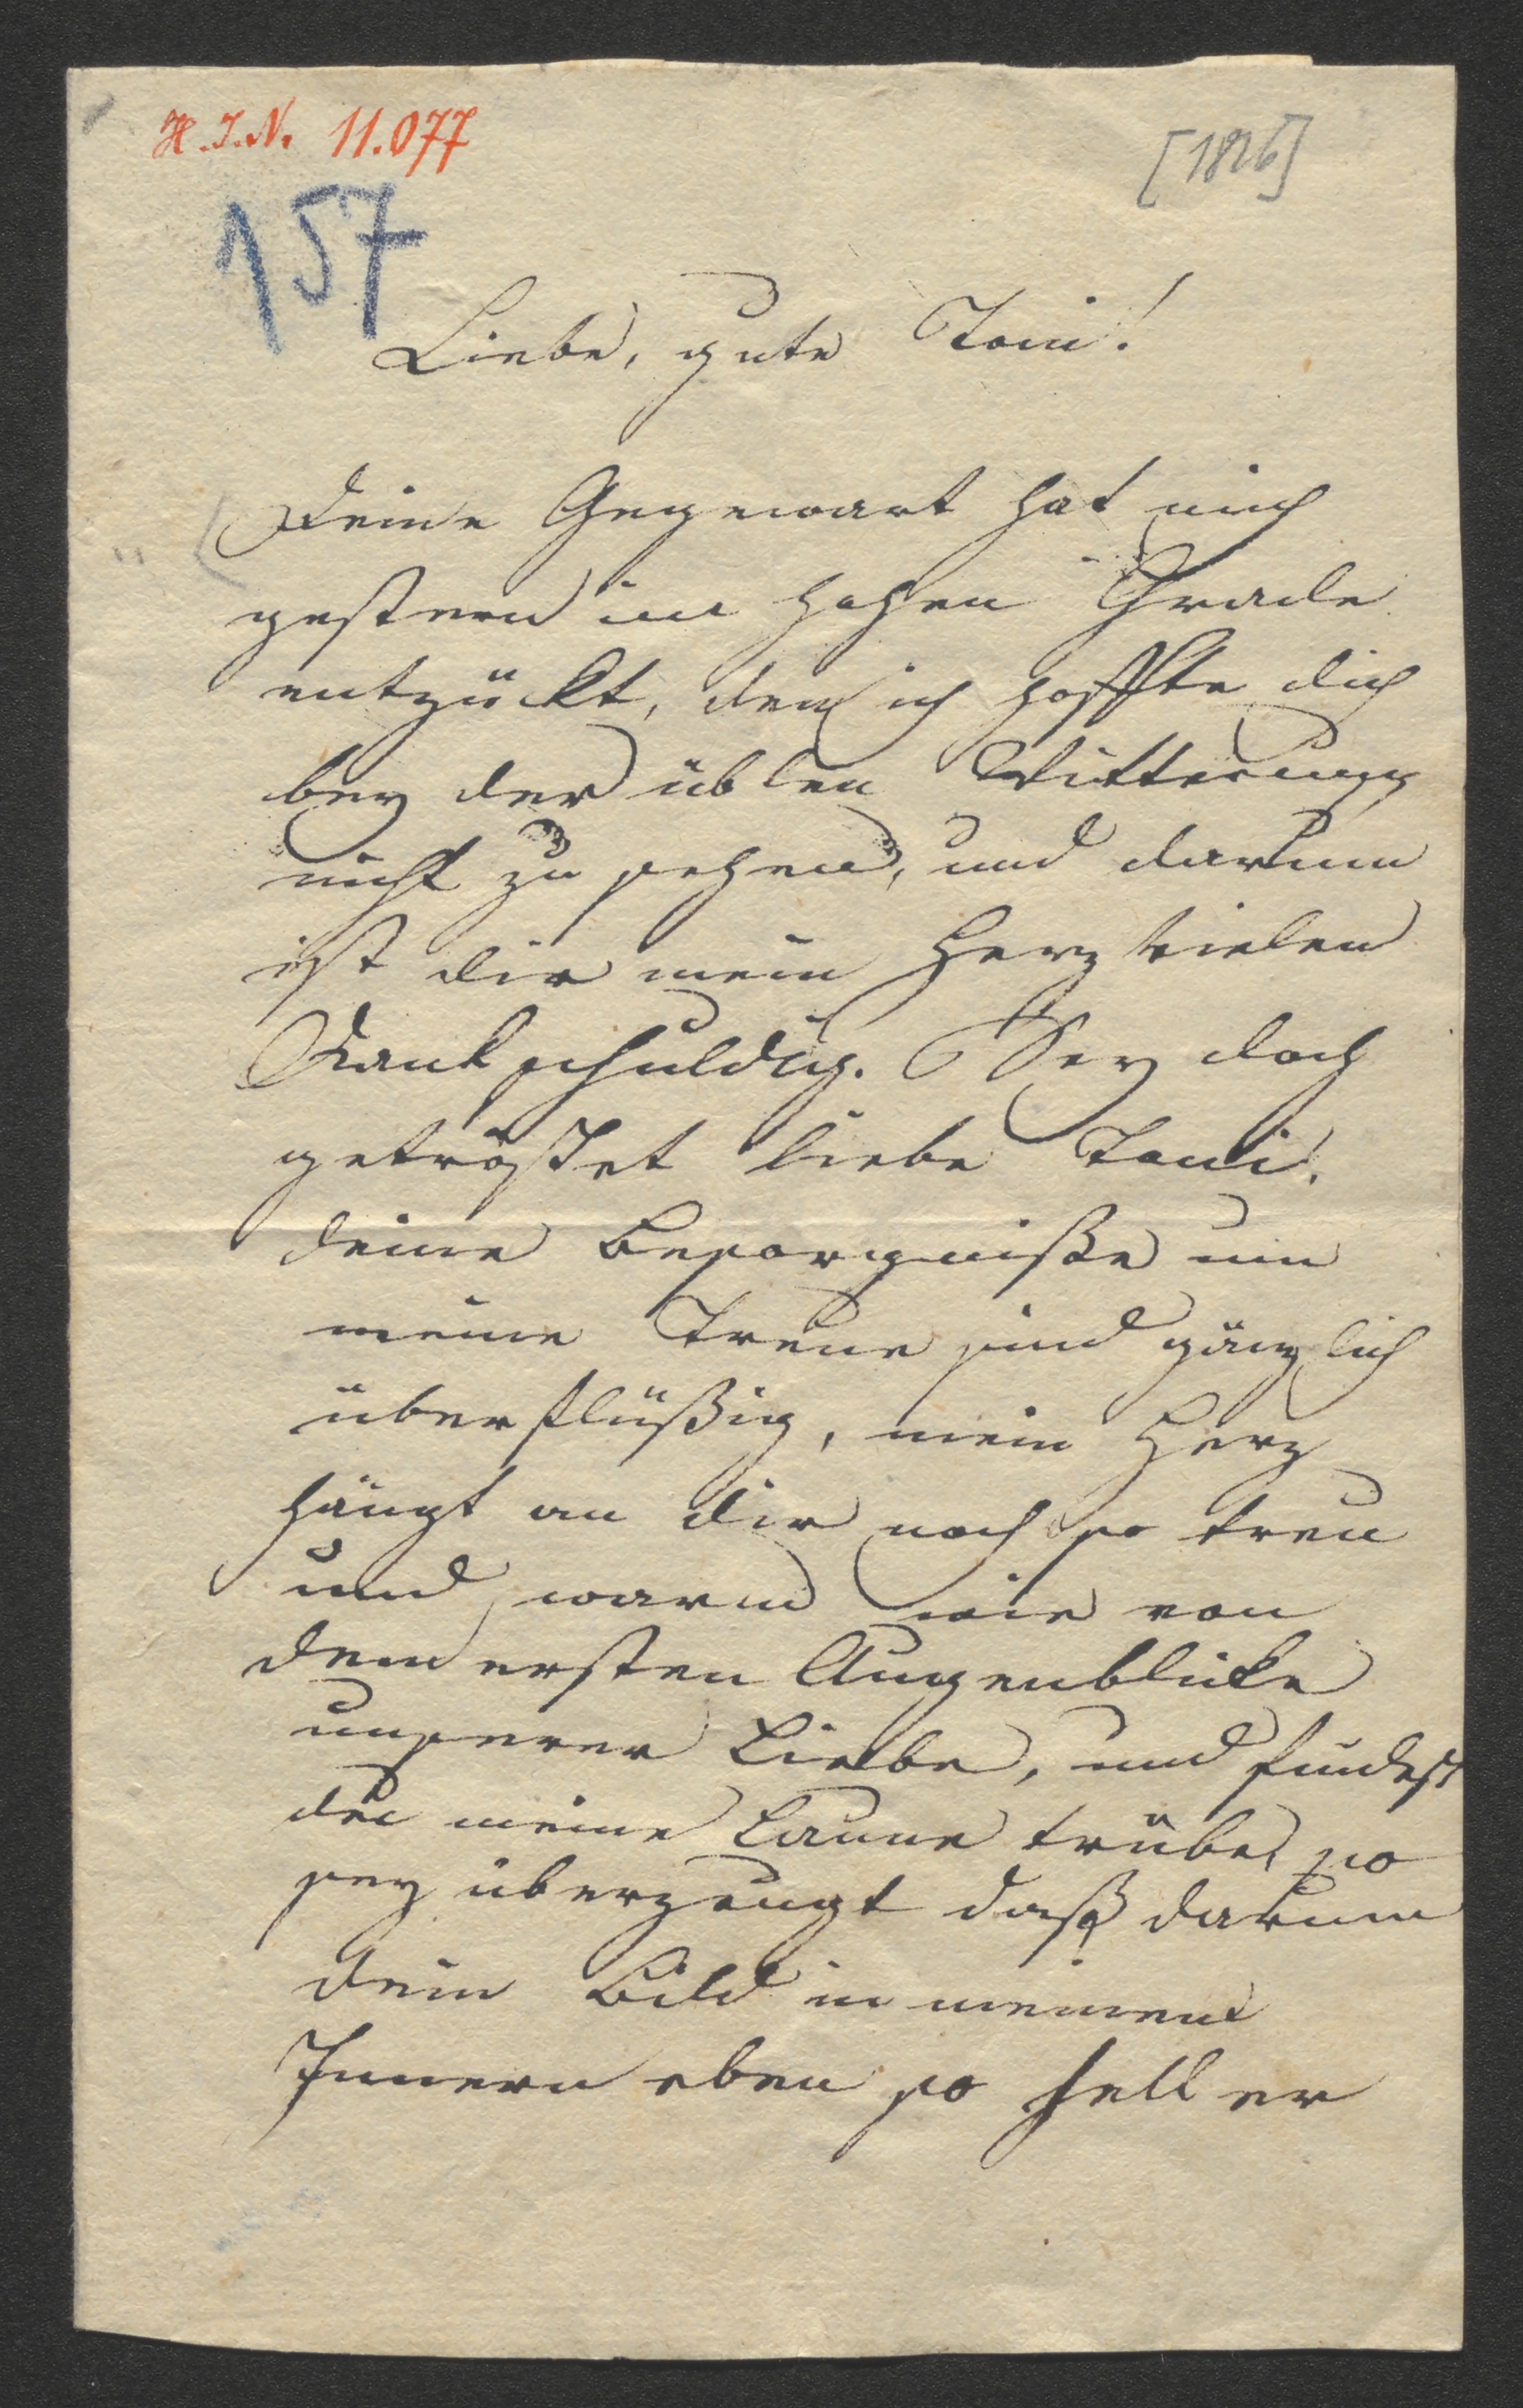 H.I.N. 11.077
[1826]
157
Liebe, gute Toni!
Deine Gegenwart hat mich
gestern im hohen Grade
entzückt, den ich hoffte dich
bey der üblen Witterung
nicht zu sehen, und darum
ist dir mein Herz vielen
Dank schuldig. Sey doch
getröstet liebe Toni!
deine Besorgniße um
meine Treue sind gänzlich
überflüßig, mein Herz
hängt an dir noch so treu
und warm wie von
dem ersten Augenblicke
unserer Liebe, und findest
du meine Laune trübe, so
sey überzeugt daß darum
dein Bild in meinem
Innern eben so hell er